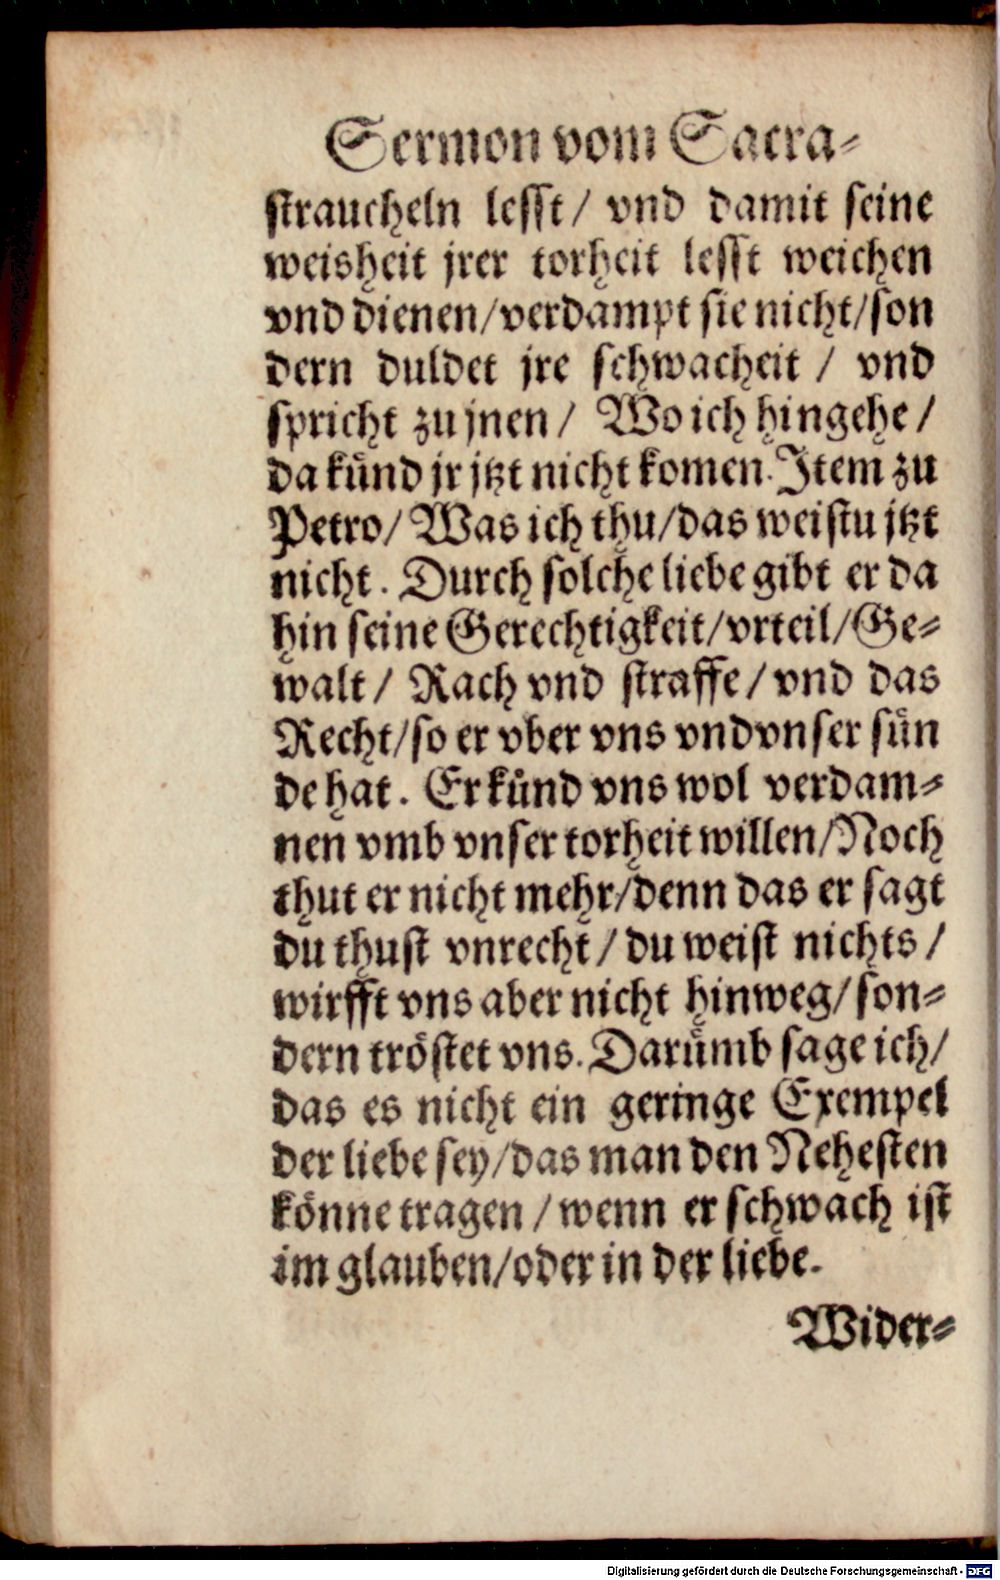 Sermon vom Sacra-
straucheln lesst/ vnd damit seine
weisheit jrer torheit lesst weichen
vnd dienen/verdampt sie nicht/son
dern duldet jre schwacheit / vnd
spricht zu jnen/ Wo ich hingehe/
da künd jr jtzt nicht komen. Item zu
Petro/ Was ich thu/das weistu jtzt
nicht. Durch solche liebe gibt er da
hin seine Gerechtigkeit/vrteil/Ge-
walt/ Rach vnd straffe/vnd das
Recht/so er vber vns vnd vnser sün
de hat. Er künd vns wol verdam-
nen vmb vnser torheit willen/Noch
thut er nicht mehr/denn das er sagt
du thust vnrecht/ du weist nichts/
wirfft vns aber nicht hinweg/son-
dern tröstet vns. Darümb sage ich/
das es nicht ein geringe Exempel
der liebe sey/das man den Nehesten
könne tragen/wenn er schwach ist
im glauben/oder in der liebe.
Wider-
Digitalisierung gefördert durch die Deutsche Forschungsgemeinschaft - DFG